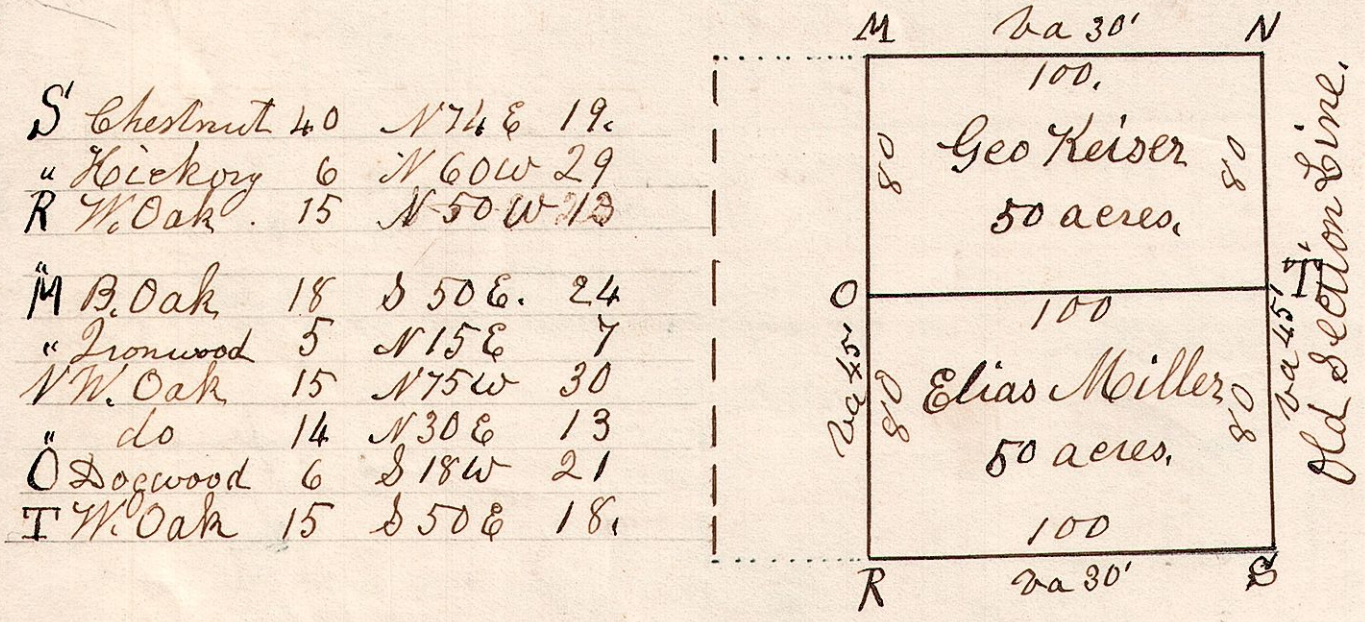 S Chestnut 40 N74E 19.
" Hickory 6 N60W 29
R W. Oak . 15 N50W
"
M B. Oak 18 S 50E. 24
" Ironwood 5 N15E 7
N W. Oak 15 N75W 30
" do 14 N30E 13
O Dogwood 6 S18W 21
T W. Oak 15 S50E 18.
M va 30' N
100.
80 Geo Keiser 80
50 acres.
O T
100
va 45' 80 Elias Miller 80 va 45'
50 acres.
100
R va 30' S
Old Section Line.